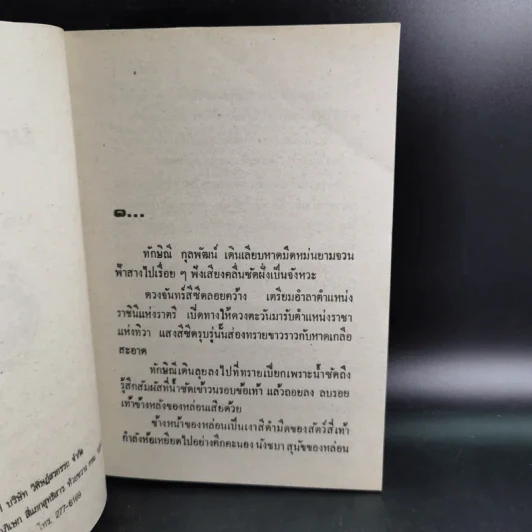 ๑...
ทักษิณี กุลพัฒน์ เดินเลียบหาดมืดหม่นยามจวน
ฟ้าสางไปเรื่อย ๆ ฟังเสียงคลื่นซัดฝั่งเป็นจังหวะ
ดวงจันทร์สีซีดลอยคว้าง เตรียมอำลาตำแหน่ง
ราชินีแห่งราตรี เปิดทางให้ดวงตะวันมารับตำแหน่งราชา
แห่งทิวา แสงสีซีดรุบรู่นั้นส่องทรายขาวราวกับหาดเกลือ
สะอาด
ทักษิณีเดินลุยลงไปที่ทรายเปียกเพราะน้ำซัดถึง
รู้สึกสัมผัสที่น้ำซัดเข้าวนรอบข้อเท้า แล้วถอยลง ลบรอย
เท้าข้างหลังของหล่อนเสียด้วย
ข้างหน้าของหล่อนเป็นเงาสีดำมืดของสัตว์สี่เท้า
กำลังห้อเหยียดไปอย่างคึกคะนอง นังชบา สุนัขของหล่อน
บริษัท วิศิษฏ์สรรรถ จำกัด
โทร. 277-6169